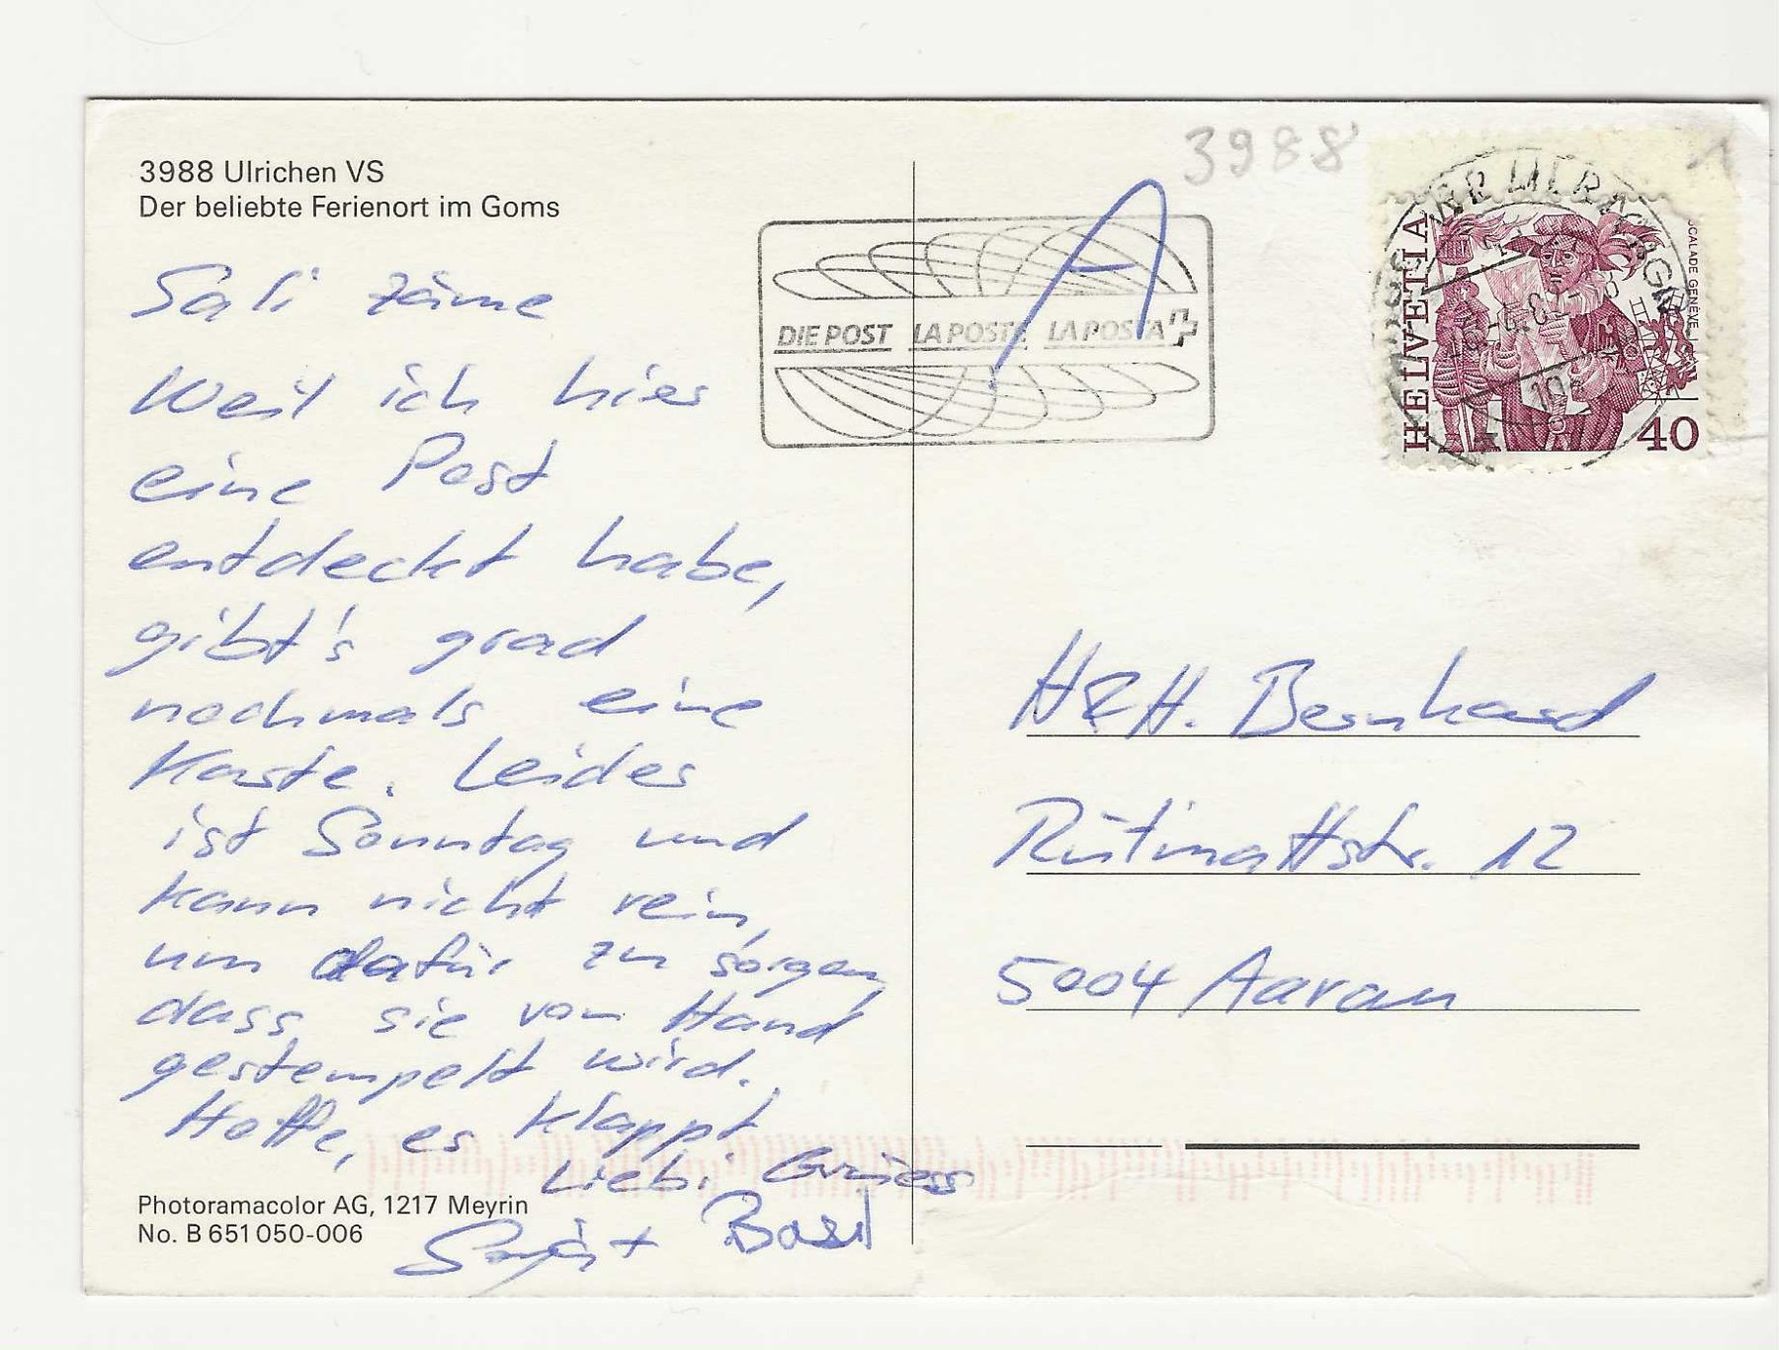 3988 Ulrichen VS
Der beliebte Ferienort im Goms
Sali zäme
Weil ich hier
eine Post
entdeckt habe,
gibt's grad
nochmals eine
Karte. Leider
ist Sonntag und
kann nicht rein,
um dafür zu sorgen,
dass sie von Hand
gestempelt wird.
Hoffe, es klappt
Liebi Grüess
+ Basil
Photoramacolor AG, 1217 Meyrin
No. B 651 050-006
3988
A
DIE POST LA POSTE LA POSTA
HELVETIA
ESCALADE GENÈVE
40
H&H. Bernhard
Rütimattstr. 12
5004 Aarau